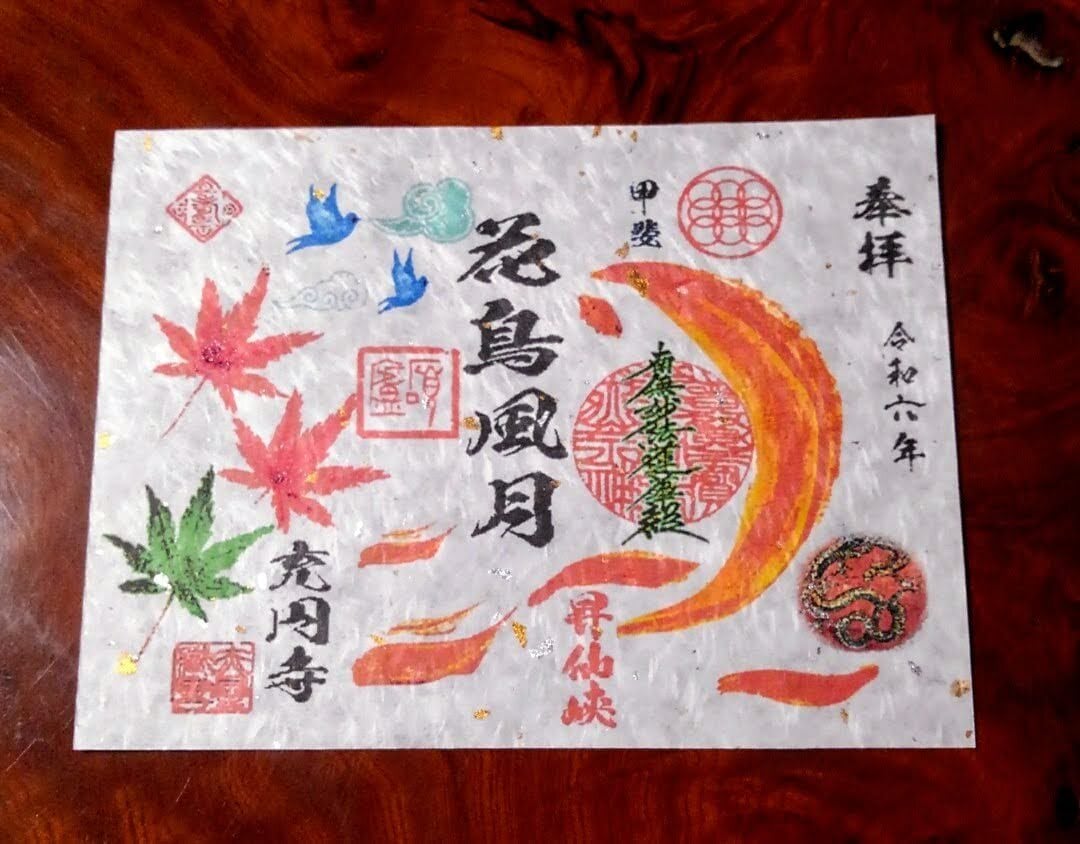 奉拝
令和六年
甲斐
南無妙法蓮華経
昇仙峡
花鳥風月
充円寺